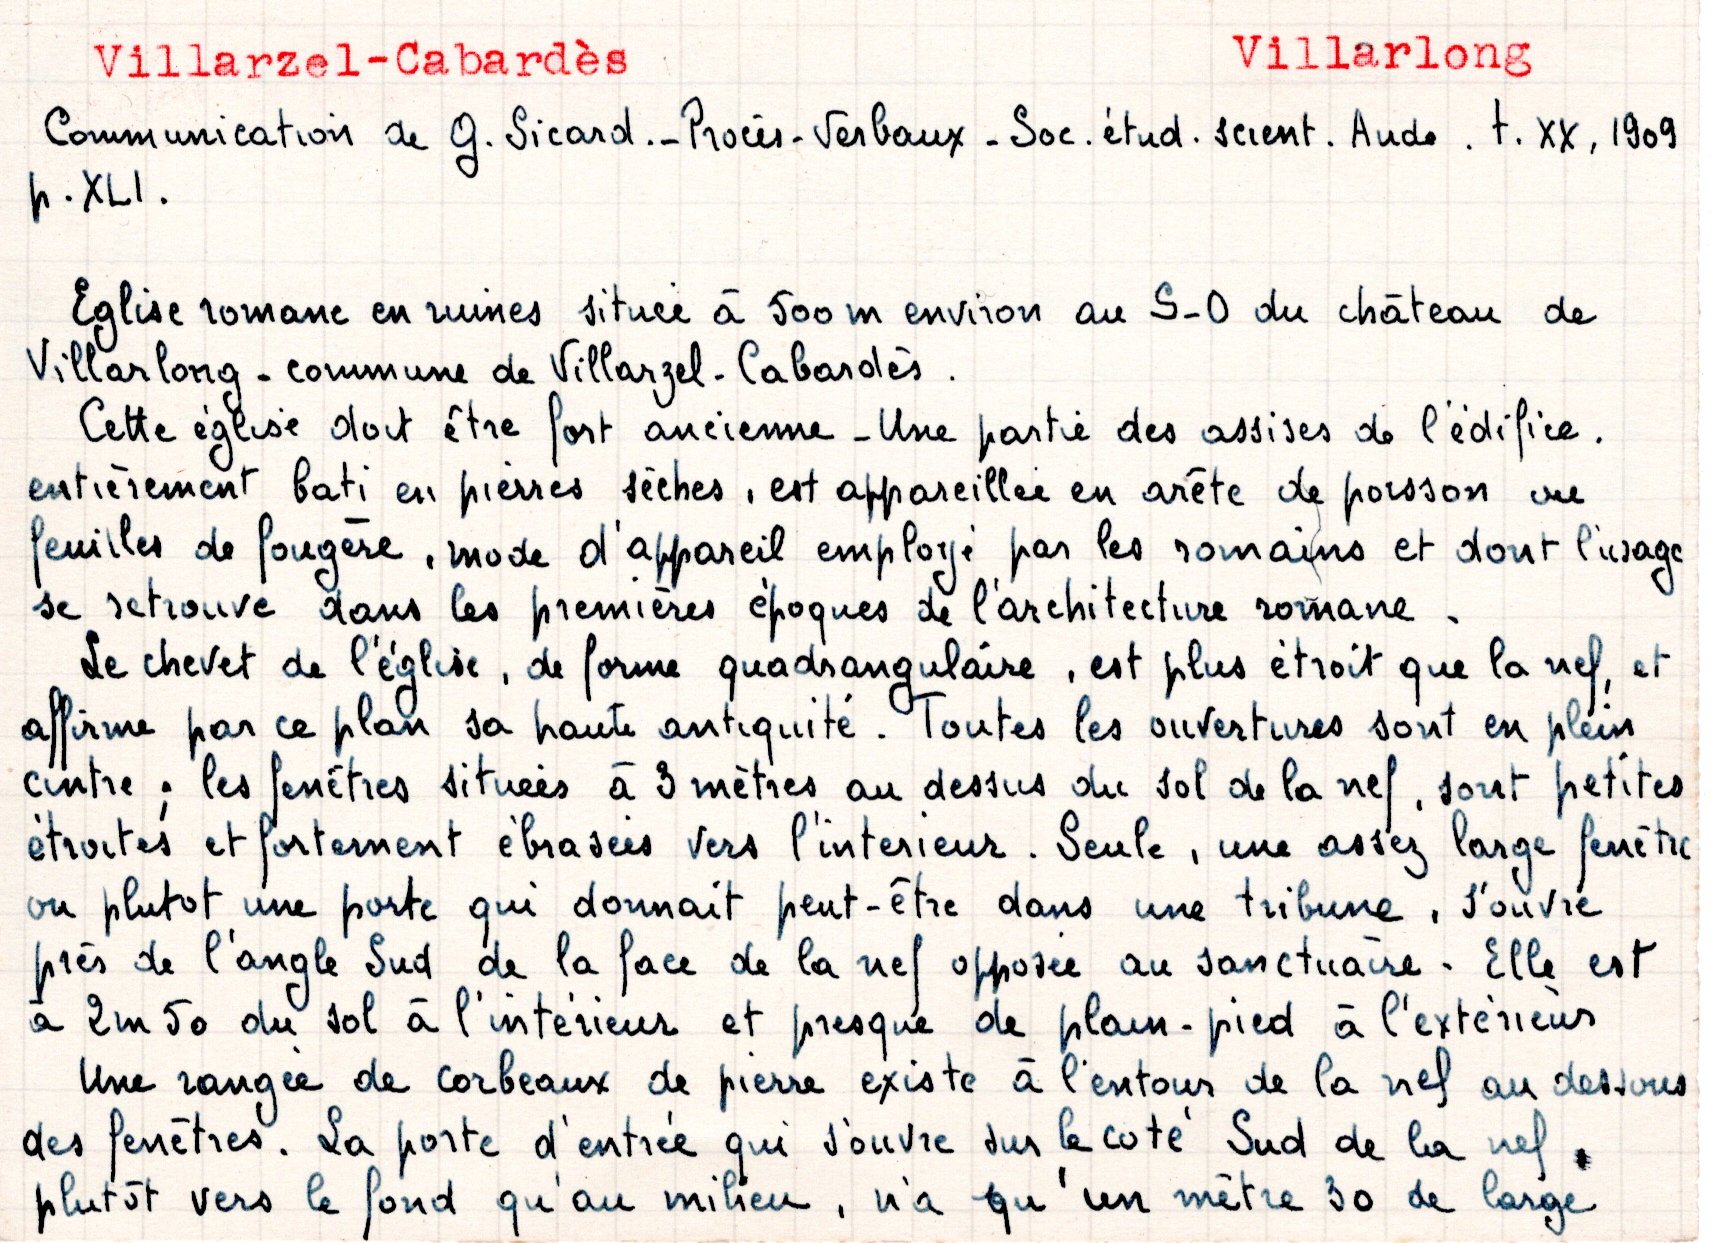 Villarzel-Cabardès Villarlong
Communication de G. Sicard.- Procès-Verbaux - Soc. étud. scient. Aude. t. XX, 1909
p. XLI.
Eglise romane en ruines située à 500 m environ au S-O du château de
Villarlong - commune de Villarzel-Cabardès.
Cette église doit être fort ancienne - Une partie des assises de l'édifice.
entièrement bati en pierres sèches, est appareillée en arête de poisson ou
feuilles de fougère, mode d'appareil employé par les romains et dont l'usage
se retrouve dans les premières époques de l'architecture romane.
Le chevet de l'église, de forme quadrangulaire, est plus étroit que la nef, et
affirme par ce plan sa haute antiquité. Toutes les ouvertures sont en plein
cintre ; les fenêtres situées à 3 mètres au dessus du sol de la nef, sont petites
étroites et fortement ébrasées vers l'interieur. Seule, une assez large fenêtre
ou plutot une porte qui donnait peut-être dans une tribune, s'ouvre
près de l'angle Sud de la face de la nef opposée au sanctuaire. Elle est
à 2m50 du sol à l'intérieur et presque de plain-pied à l'extérieur
Une rangée de corbeaux de pierre existe à l'entour de la nef au dessous
des fenêtres. La porte d'entrée qui s'ouvre sur le coté Sud de la nef.
plutôt vers le fond qu'au milieu, n'a qu'un mètre 30 de large